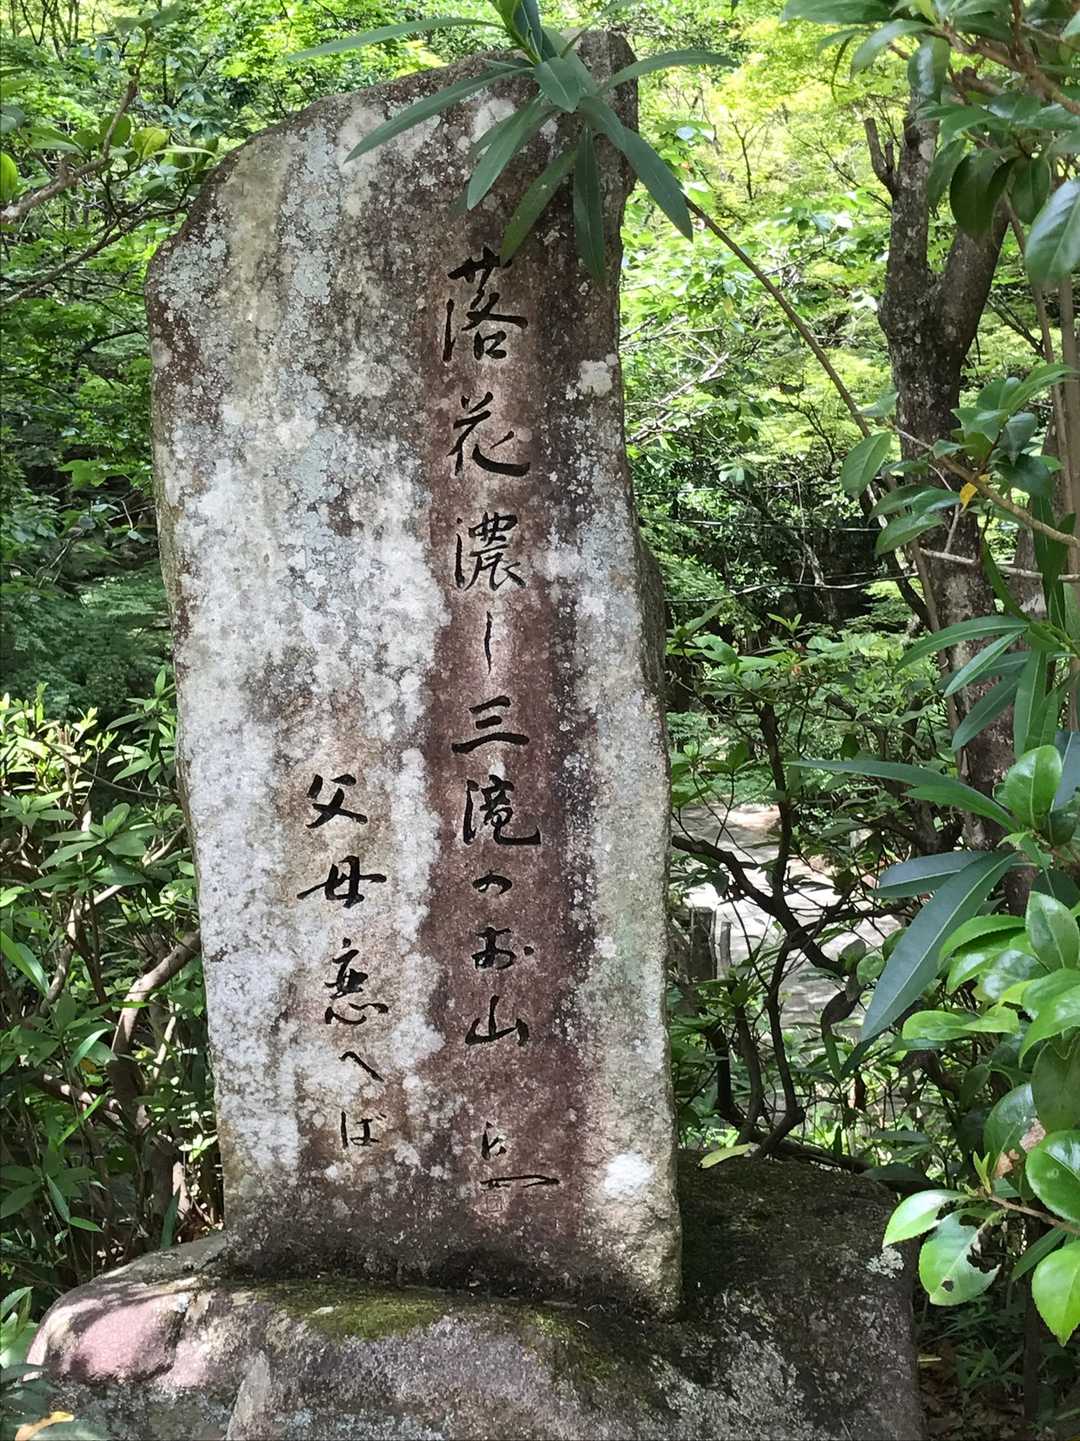 落花濃し三滝のお山
父母恋へば